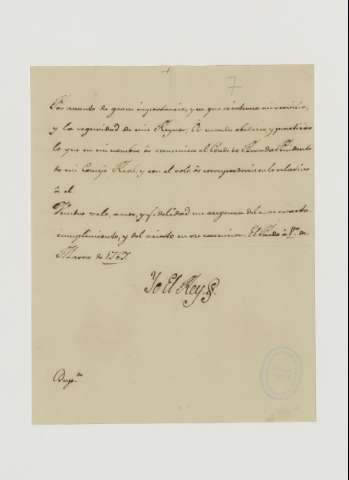 7
Por asunto de grave importancia, y en que se interesa mi servicio,
y la seguridad de mis Reynos, Os mando obedecer y practicar
lo que en mi nombre os comunica el Conde de Aranda Presidente
de mi Consejo Real, y con el solo os corresponderéis en lo relativo
à el
Vuestro zelo, amor, y fidelidad me aseguran del mas exacto
cumplimiento, y del acierto en su execucion. El Pardo à 1.º de
Marzo de 1767.
Yo El Rey
Dup.do